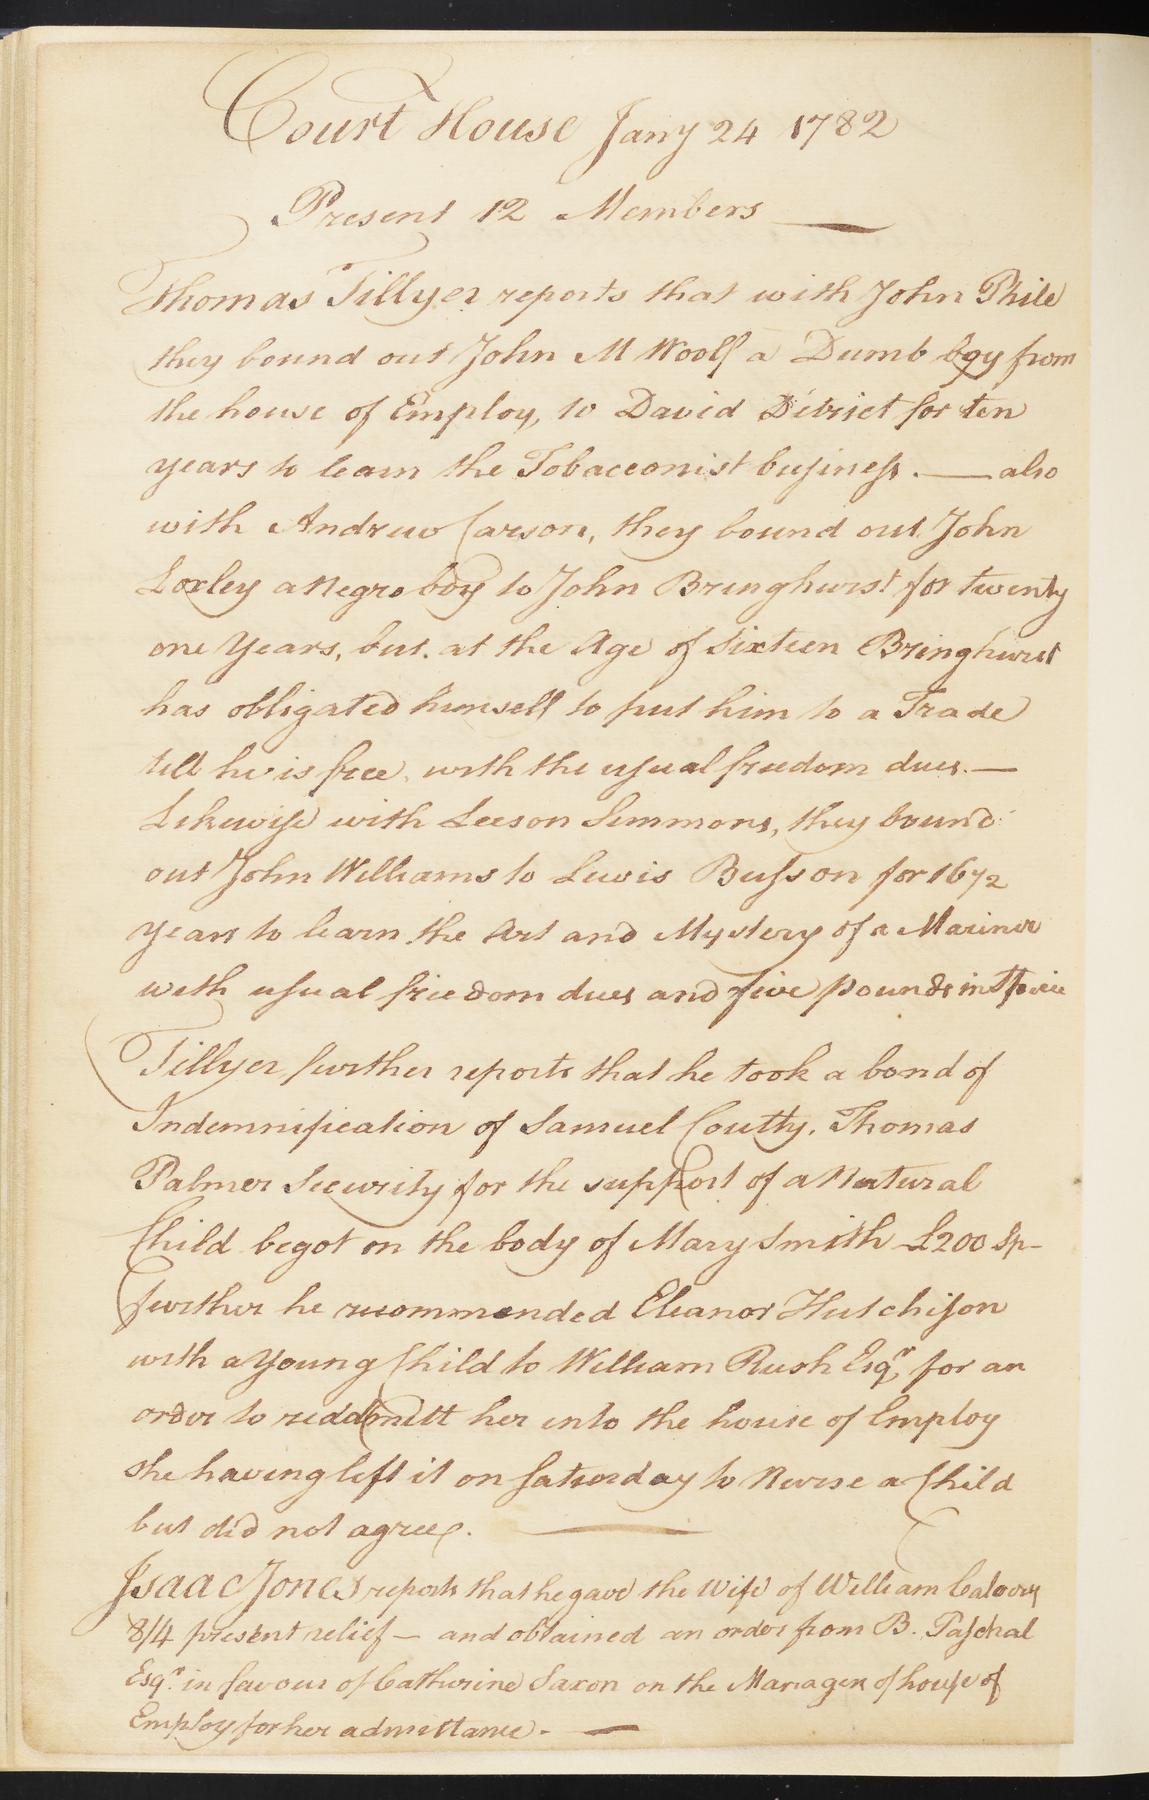 Court House Jany 24 1782
Present 12 Members —
Thomas Tillyer reports that with John Phile
they bound out John M Woolf a Dumb boy from
the house of Employ, to David Détrict for ten
years to learn the Tobacconist business. — also
with Andrew Carson, they bound out John
Loxley a Negro boy to John Bringhurst for twenty
one Years, but. at the Age of Sixteen Bringhurst
has obligated himself to put him to a Trade
till he is free, with the usual freedom dues. —
Likewise with Leeson Simmons, they bound
out John Williams to Lewis Busson for 16 1/2
Years to learn the Art and Mystery of a Mariner
with usual freedom dues and five pounds in Specie
Tillyer further reports that he took a bond of
Indemnification of Samuel Coutty. Thomas
Palmer Security for the support of a Natural
Child begot on the body of Mary Smith £200 Sp-
further he recommended Eleanor Hutchison
with a young Child to William Rush Esqr. for an
order to readdmitt her into the house of Employ
she having left it on Saturday to Nurse a Child
but did not agree. —
Isaac Jones reports that he gave the Wife of William
8/4 present relief — and obtained an order from B. Paschal
Esqr. in favour of Catherine Saxon on the Manager of house of
Employ for her admittance. —